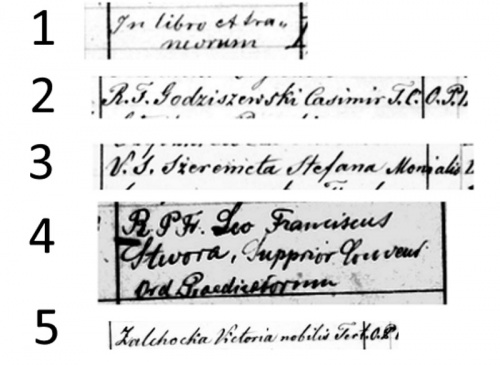 1
In libro extra-
neorum
2
R. F. Godziszewski Casimir T. C. O. P.
3
V. S. Szeremeta Stefana Monialis
4
R P Fr. Leo Franciscus
Stwora, Supprior Convent
Ord Praedicatorum
5
Zalchocka Victoria nobilis Tert. O. P.